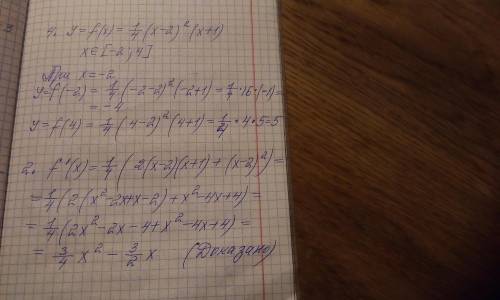 1. y=f(x)=1/4(x-2)²(x+1)
x∈[-2;4]
При x=-2
y=f(-2)=1/4(-2-2)²(-2+1)=1/4·16·(-1)=
=-4
y=f(4)=1/4(4-2)²(4+1)=1/4·4·5=5
2. f'(x)=1/4(2(x-2)(x+1)+(x-2)²)=
=1/4(2(x²-2x+x-2)+x²-4x+4)=
=1/4(2x²-2x-4+x²-4x+4)=
=3/4x²-3/2x (Доказано)